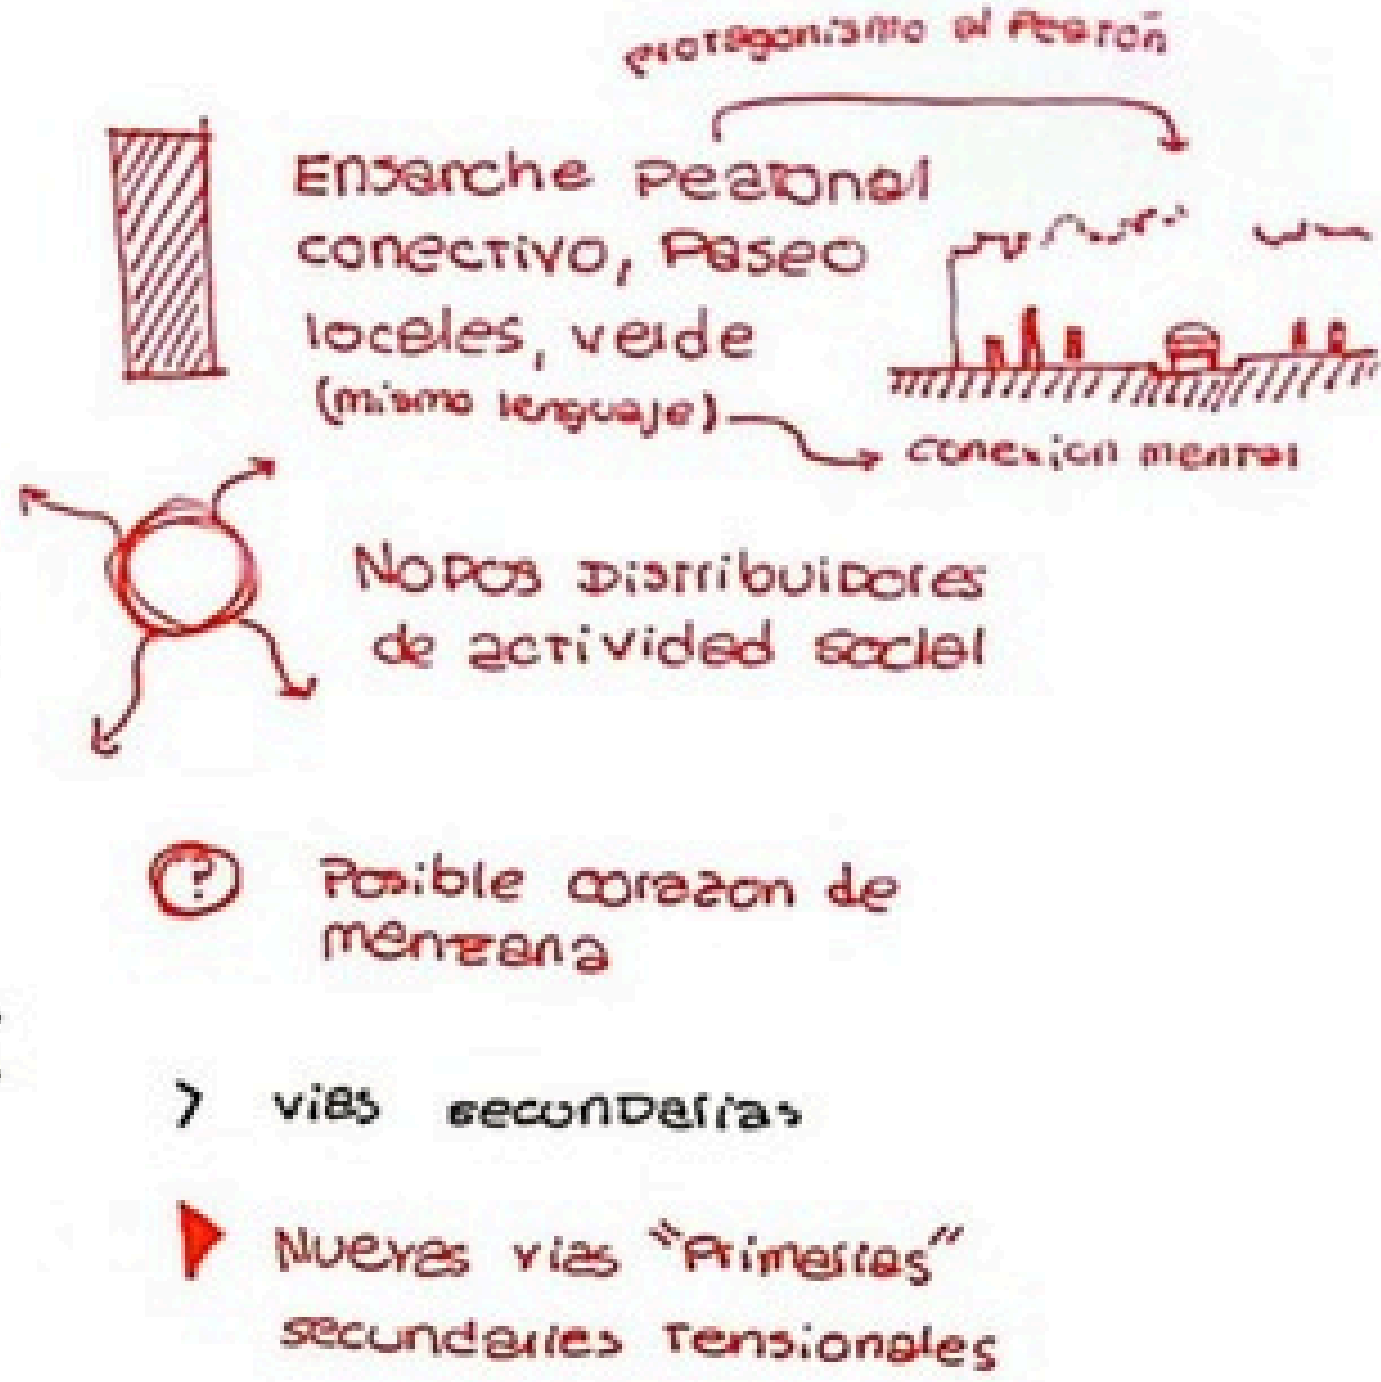 protagonismo al Peatón
Ensanche Peatonal
conectivo, Paseo
locales, verde
(mismo lenguaje)
conexion mental
Nodos Distribuidores
de actividad social
?
Posible corazon de
manzana
vias secundarias
Nuevas vias "Primarias"
secundarias Tensionales